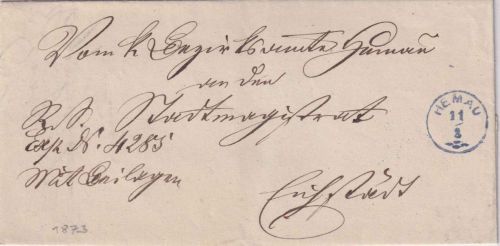 Vom k. Bezirksamte Hemau
an den
R. S. Stadtmagistrat
Exp. N. 4285
Mit Beilagen
Eichstädt
HEMAU
11
3
1873